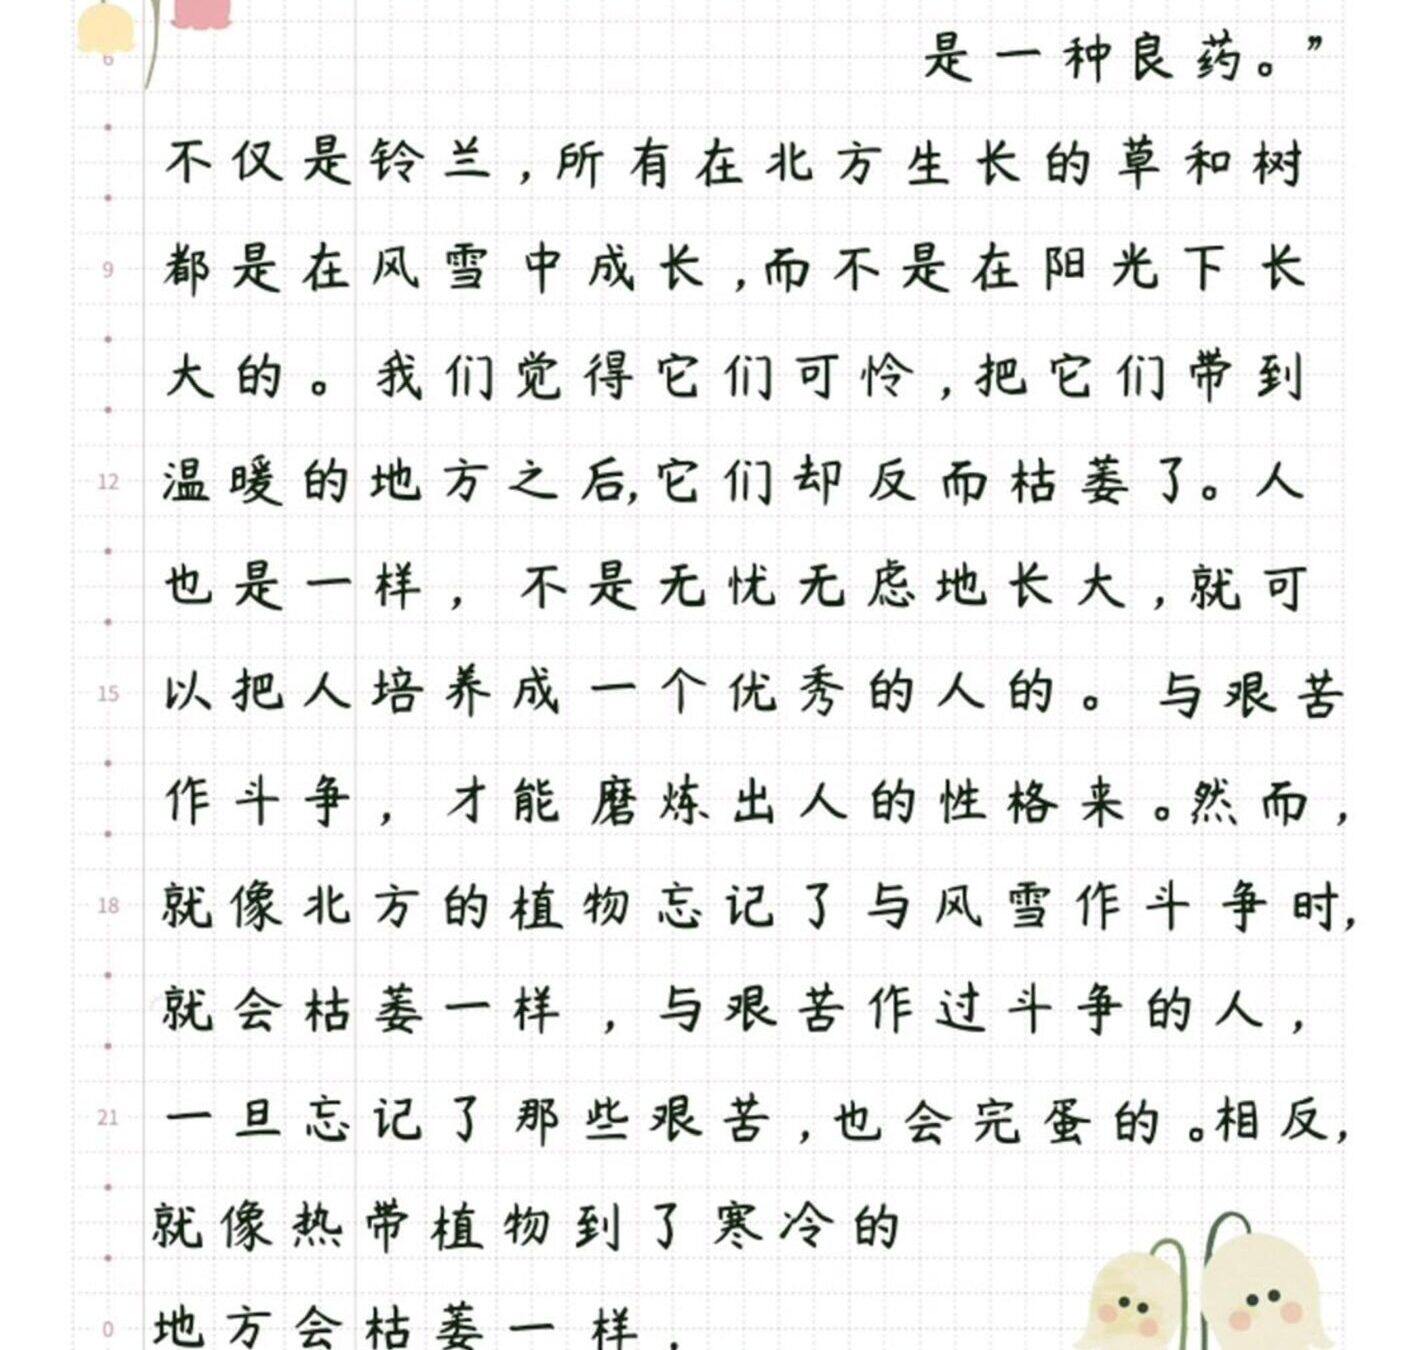 是一种良药。”
6
不仅是铃兰,所有在北方生长的草和树
9
都是在风雪中成长,而不是在阳光下长
大的。我们觉得它们可怜,把它们带到
12
温暖的地方之后,它们却反而枯萎了。人
也是一样，不是无忧无虑地长大,就可
15
以把人培养成一个优秀的人的。与艰苦
作斗争，才能磨炼出人的性格来。然而,
18
就像北方的植物忘记了与风雪作斗争时,
就会枯萎一样，与艰苦作过斗争的人，
21
一旦忘记了那些艰苦,也会完蛋的。相反,
就像热带植物到了寒冷的
0
地方会枯萎一样，